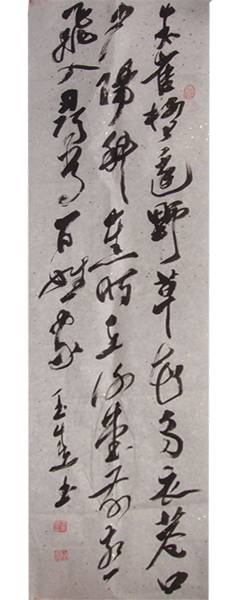 朱雀橋邊野草花烏衣巷口
夕陽斜舊時王謝堂前燕
飛入尋常百姓家 玉